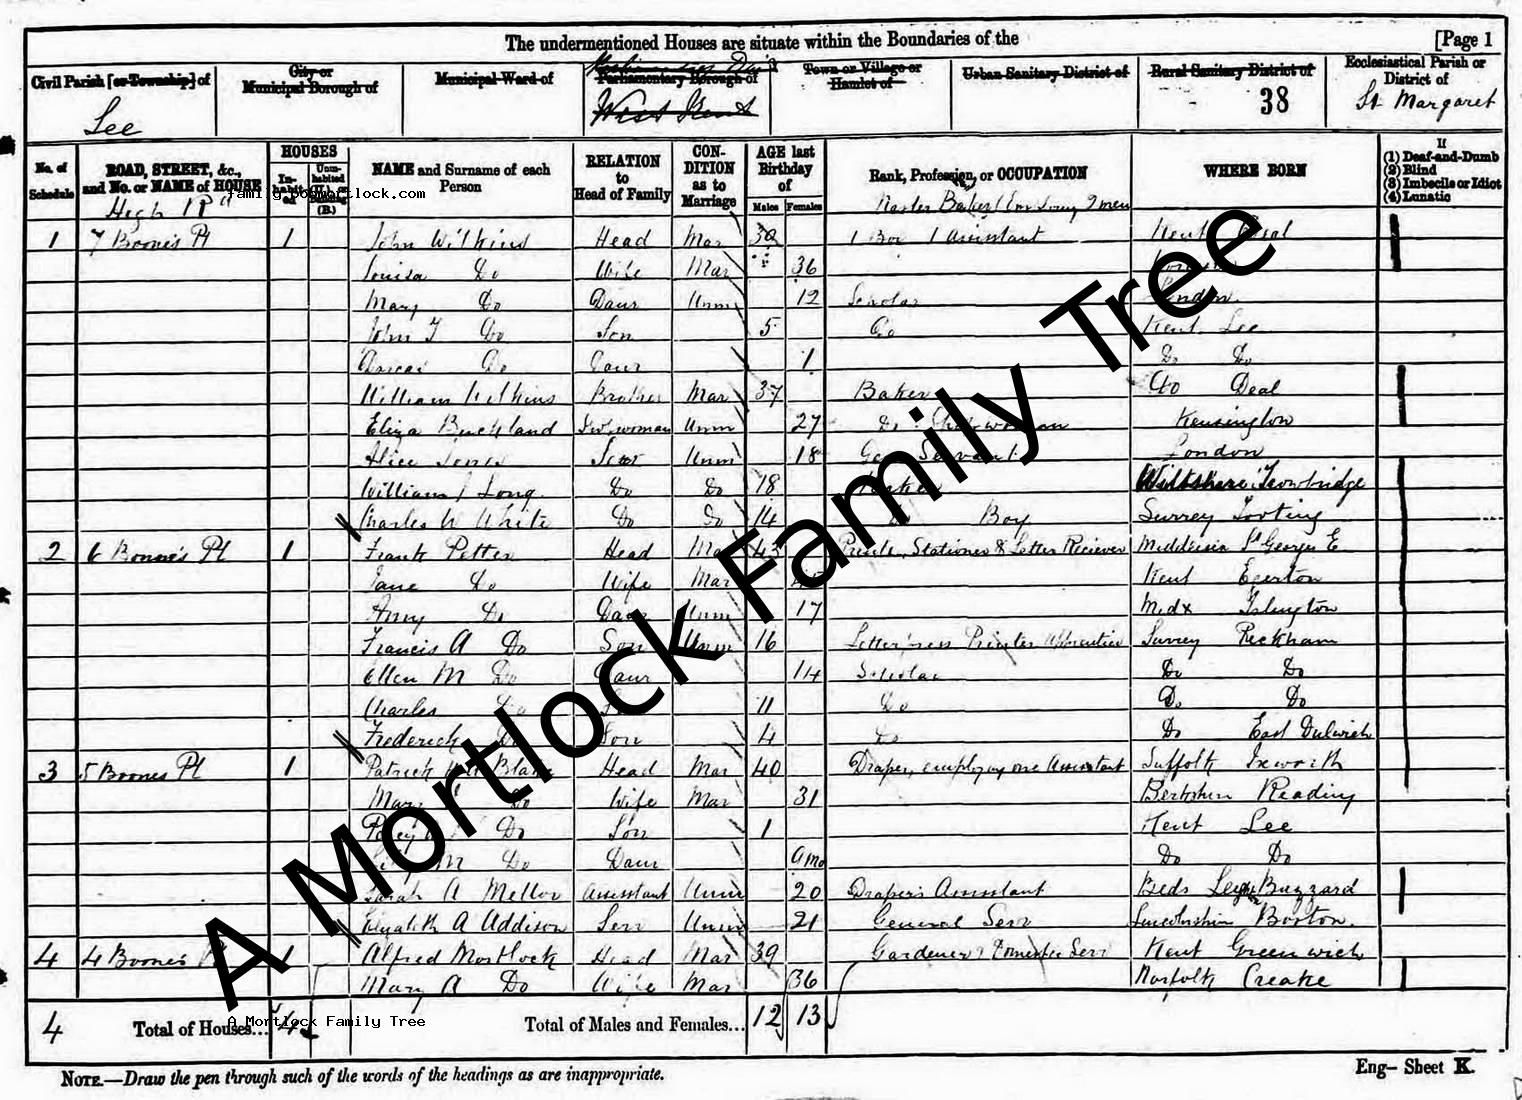 The undermentioned Houses are situate within the Boundaries of the [Page 1
Civil Parish [or Township] of City or Municipal Borough of Municipal Ward of Parliamentary Borough of Town or Village or Hamlet of Urban Sanitary District of Rural Sanitary District of Ecclesiastical Parish or District of
Lee West Kent 38 St Margaret
No. of Schedule ROAD, STREET, &c., and No. or NAME of HOUSE HOUSES In-habited Unin-habited (U.), or Building (B.) NAME and Surname of each Person RELATION to Head of Family CON-DITION as to Marriage AGE last Birthday of Males Females Rank, Profession, or OCCUPATION WHERE BORN If (1) Deaf-and-Dumb (2) Blind (3) Imbecile or Idiot (4) Lunatic
family.pobmortlock.com
High Rd Master Baker 2 men
1 7 Boone's Pl 1 John Wilkins Head Mar 1 Boy 1 assistant Kent Deal
Louisa Do Wife Mar 36
Mary Do Daur Unm 12 Scholar London
John T Do Son 5 Do Kent Lee
Do Daur 1 Do Do
William Wilkins Brother Mar 37 Baker Do Deal
Eliza Buckland Unm 27 Do Shopwoman Kensington
Alice Jones Serv Unm 18 Gen Servant London
William J Long Do Do 18 Baker Wiltshire Trowbridge
Charles W White Do Do 14 Do Boy Surrey Tooting
2 6 Boone's Pl 1 Frank Potter Head Mar 43 Printer, Stationer & Letter Reciever Middlesex St Georges E
Jane Do Wife Mar Kent Egerton
Amy Do Daur Unm 17 Midx Islington
Francis A Do Son Unm 16 Letterpress Printer Apprentice Surrey Peckham
Ellen M Do Daur 14 Scholar Do Do
Charles Do 11 Do Do Do
Frederick Do Son 4 Do Do East Dulwich
3 5 Boones Pl 1 Patrick Blake Head Mar 40 Draper, employing one Assistant Suffolk Ixworth
Mary Do Wife Mar 31 Berkshire Reading
Percy Do Son 1 Kent Lee
M Do Daur 9 mo Do Do
Sarah A Mellor Assistant Unm 20 Draper's Assistant Beds Leighton Buzzard
Elizabeth A Addison Serv Unm 21 General Serv Lincolnshire Boston
4 4 Boone's Pl 1 Alfred Mortlock Head Mar 39 Gardener Domestic Serv Kent Greenwich
Mary A Do Wife Mar 36 Norfolk Creake
4 Total of Houses... 4 Total of Males and Females... 12 13
A Mortlock Family Tree
NOTE.—Draw the pen through such of the words of the headings as are inappropriate. Eng- Sheet K.
A Mortlock Family Tree